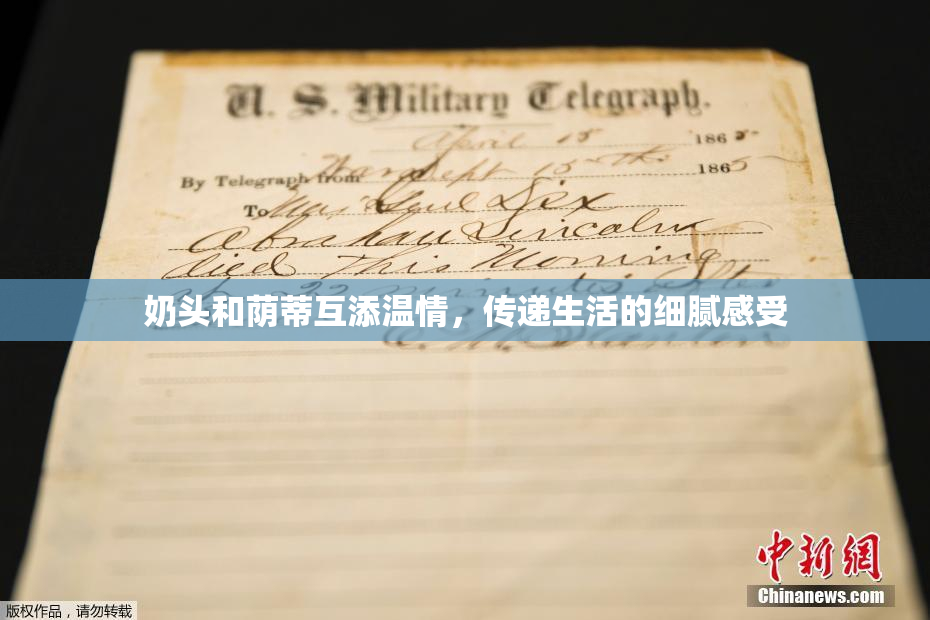 U. S. Military Telegraph.
April 15 1865
By Telegraph from War Dept 15th 1865
To Maj Genl Dix
Abraham Lincoln
died This Morning
22 minutes after
奶头和荫蒂互添温情，传递生活的细腻感受
E. M. Stanton
中新网
Chinanews.com
版权作品，请勿转载